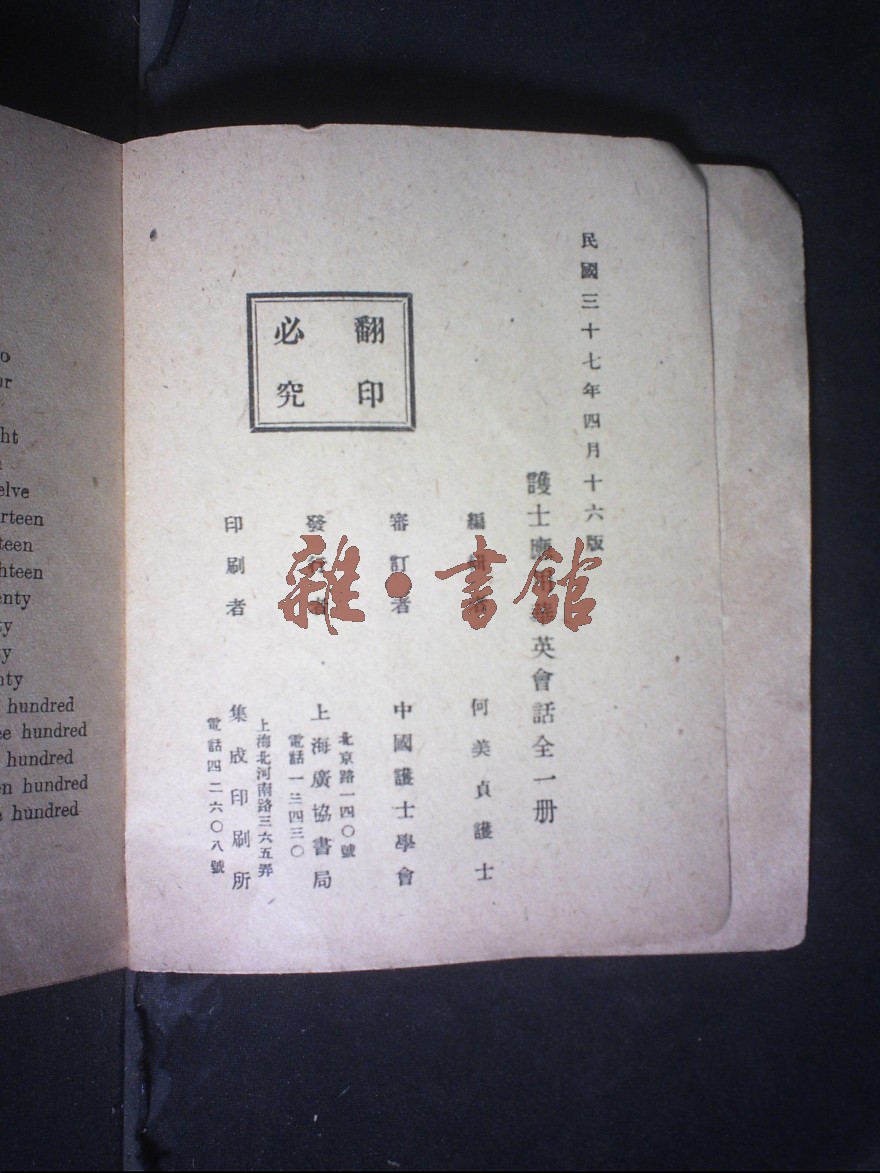 民國三十七年四月十六版
護士應用華英會話全一册
編輯者 何美貞護士
審訂者 中國護士學會
發行者 上海廣協書局
北京路一四〇號
電話一三四三〇
印刷者 集成印刷所
上海北河南路三六五弄
電話四二六〇八號
翻印
必究
雜·書館
elve
rteen
teen
hteen
enty
ty
y
nty
hundred
ee hundred
hundred
en hundred
hundred